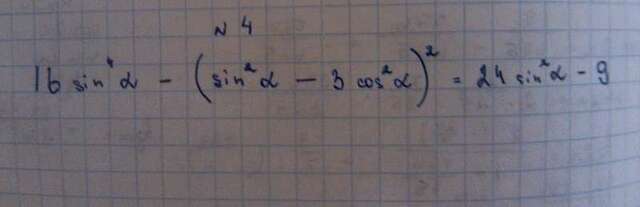 № 4
16 sin⁴α − (sin²α − 3 cos²α)² = 24 sin²α − 9